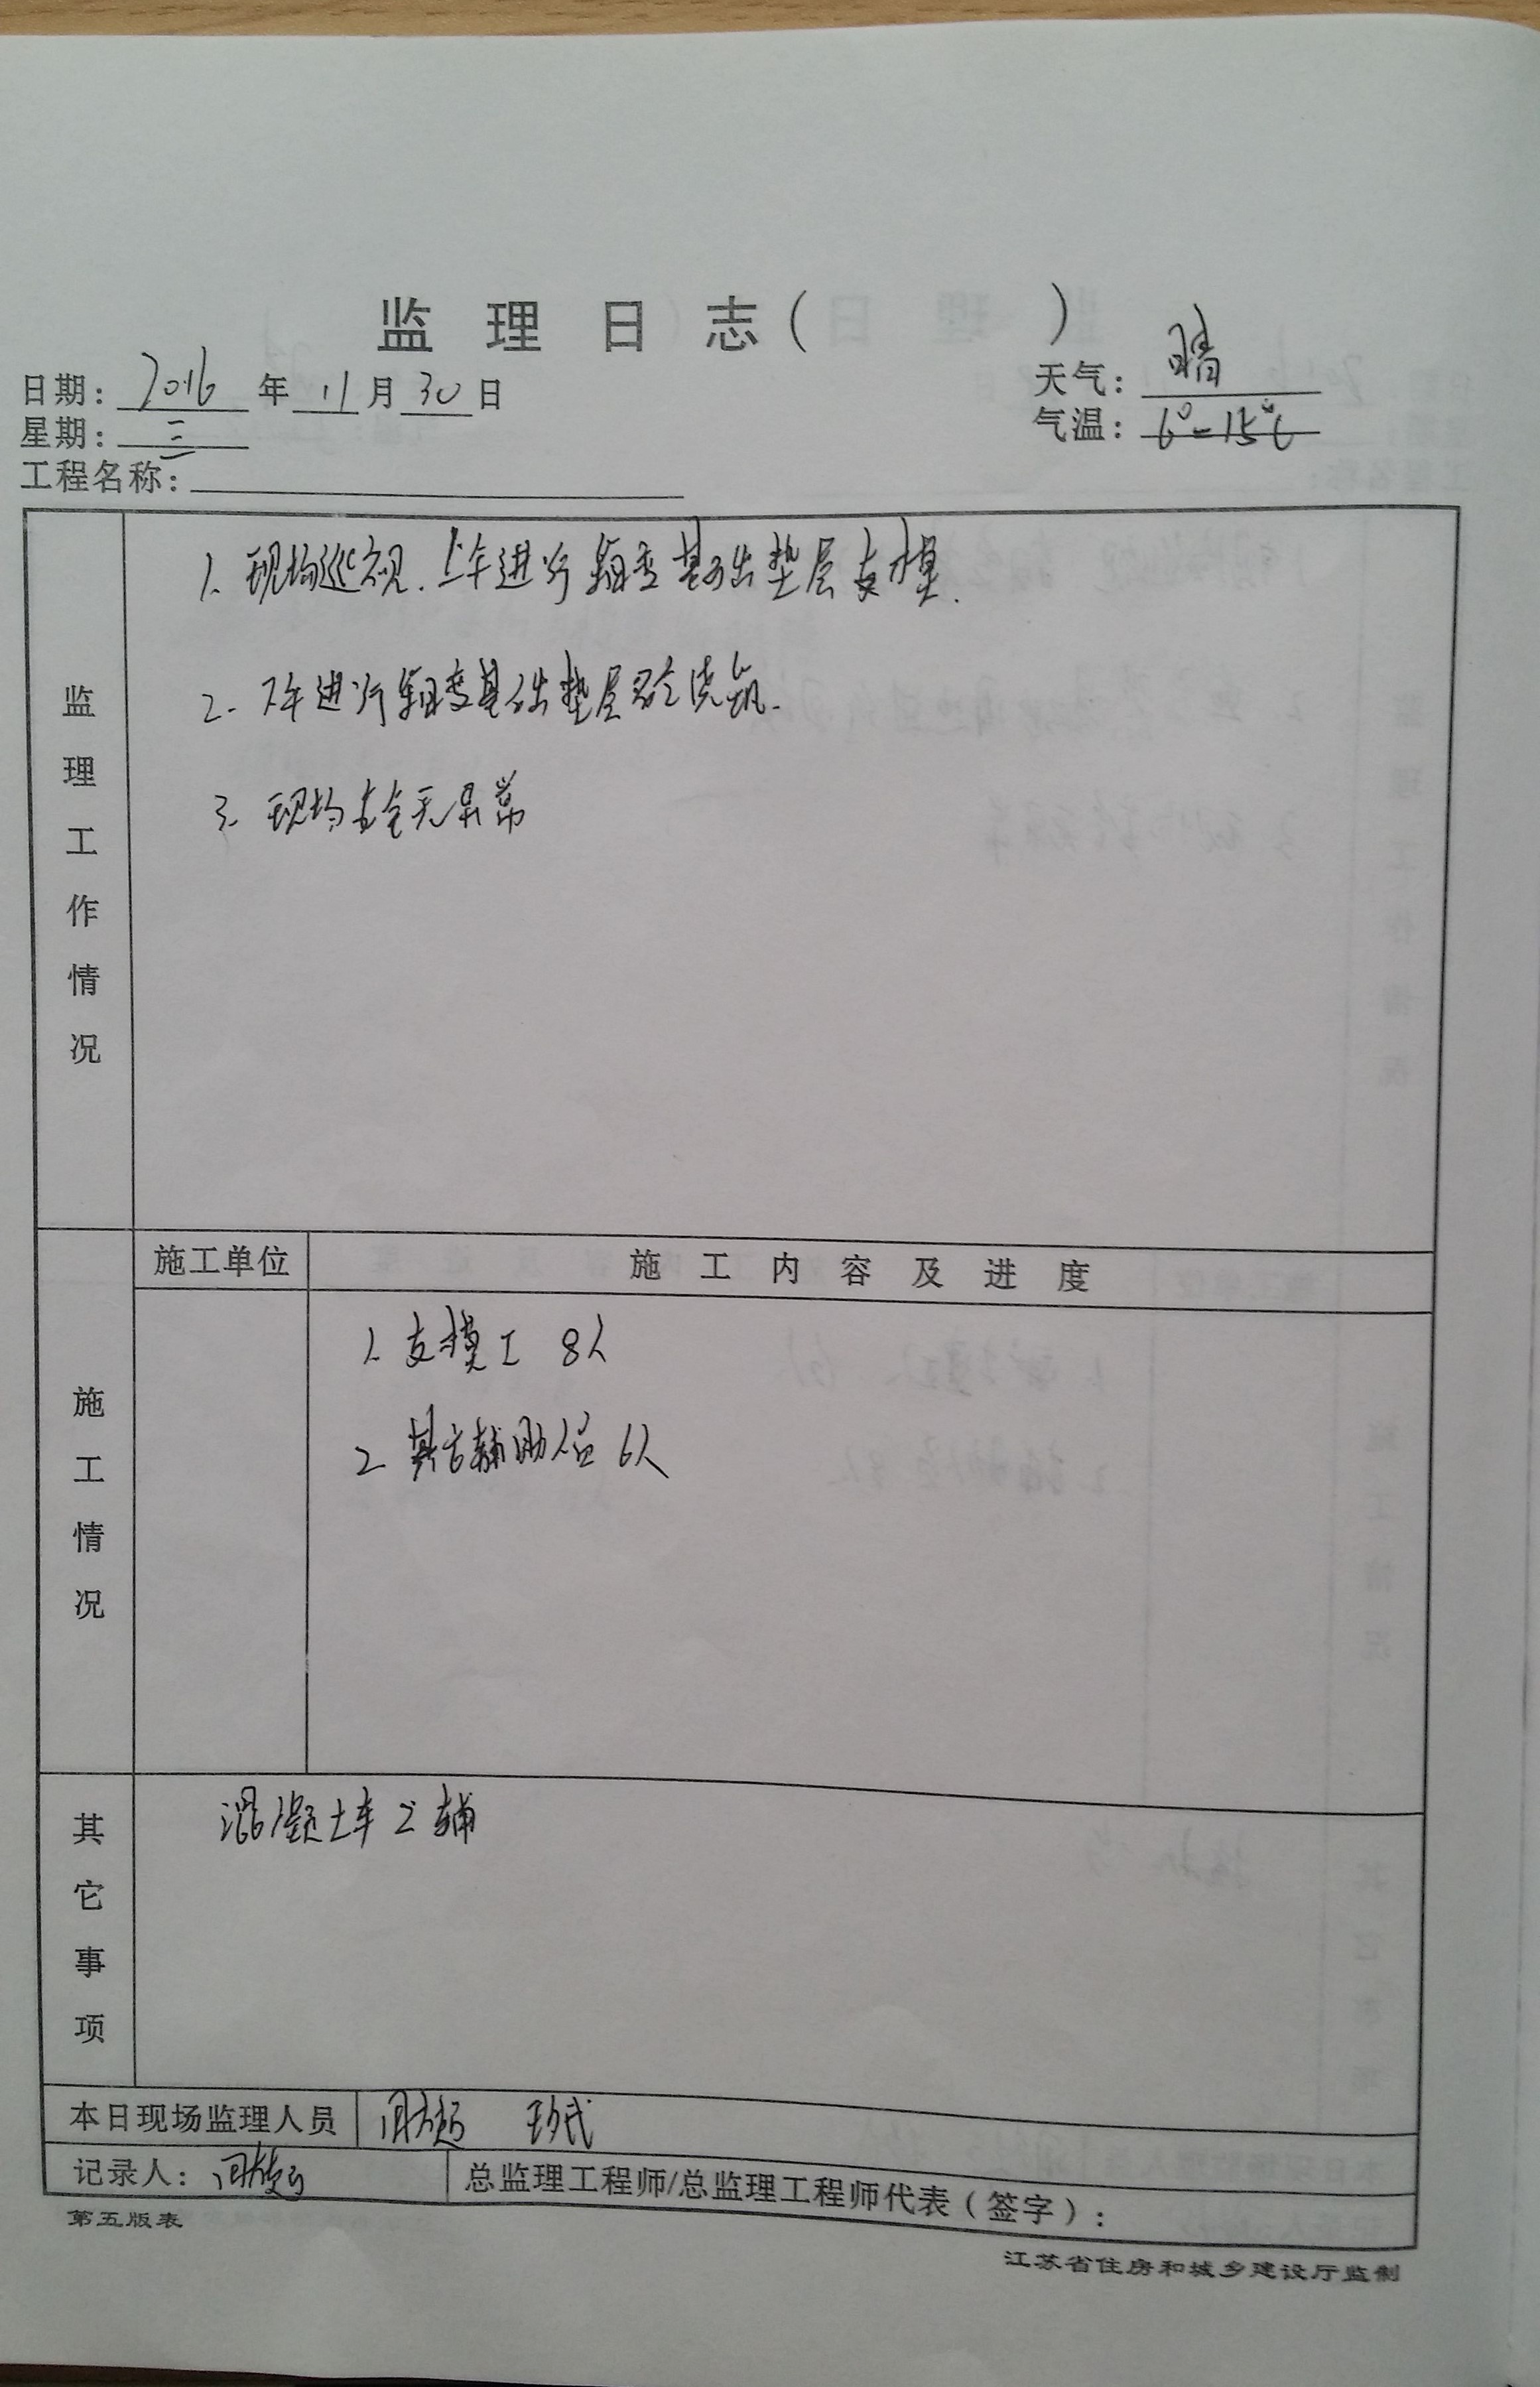 监理日志（ ）
日期：2016年11月30日
天气：晴
星期：三
气温：6°-15℃
工程名称：
监理工作情况
1. 现场巡视.上午进行箱变基础垫层支模.
2. 下午进行箱变基础垫层砼浇筑.
3. 现场安全无异常
施工情况
施工单位
施工内容及进度
1. 支模工 8人
2. 其它辅助人员 6人
其它事项
混凝土车2辆
本日现场监理人员
记录人：
总监理工程师/总监理工程师代表（签字）：
第五版表
江苏省住房和城乡建设厅监制